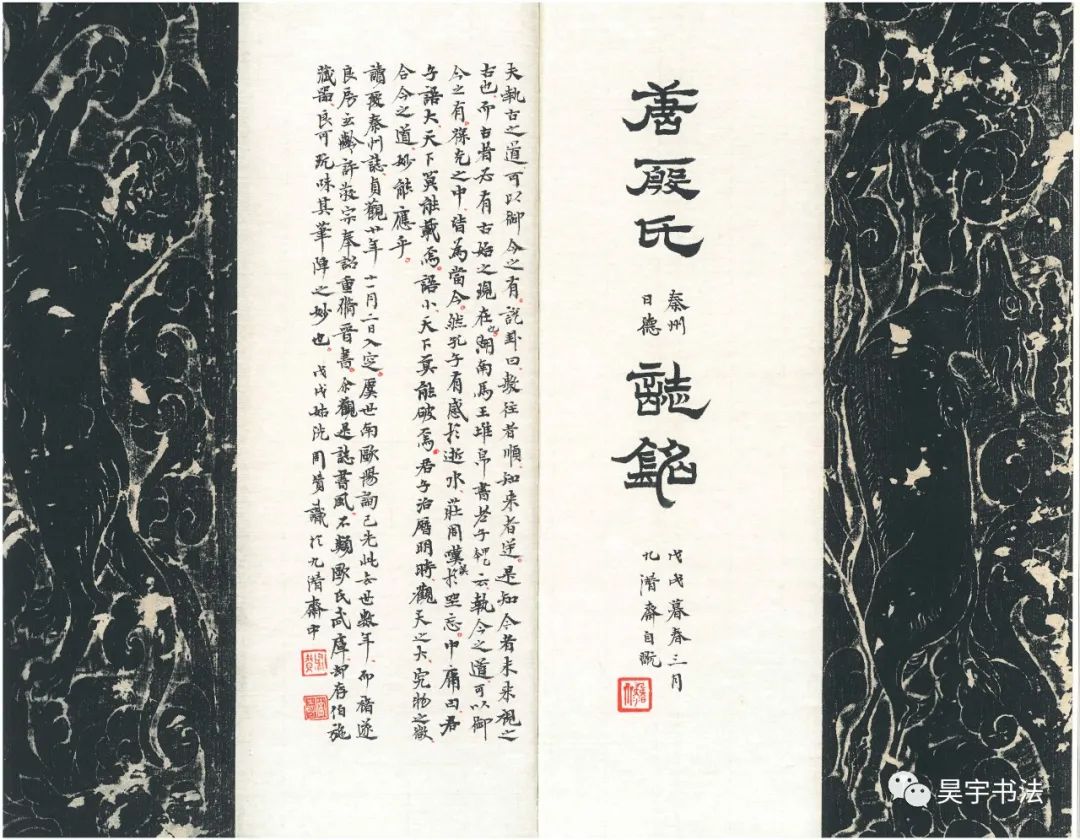 唐殷氏
秦州
日德
誌銘
戊戌暮春三月
九潛齋自翫
夫執古之道可以御今之有。說卦曰數往者順知来者逆。是知今者未来視之
古也。而古昔亦有古始之現在。湖南馬王堆帛書老子云執今之道可以御
今之有。之中皆為當今。然孔子有感於逝水莊周嘆於坐忘。中庸曰君
子語大。天下莫能載焉。語小天下莫能破焉。君子治曆明時觀天之大究物之微
合今之道。妙能應乎。
讀殷秦州誌貞觀廿年十一月二日入窆。虞世南歐陽詢已先此去世數年。而褚遂
良房玄齡許敬宗奉詔重脩晉書。余觀是誌書風不類歐氏武庫。却存伯施
藏器。良可玩味其筆陣之妙也。戊戌姑洗周贇識於九潛齋中
昊宇书法